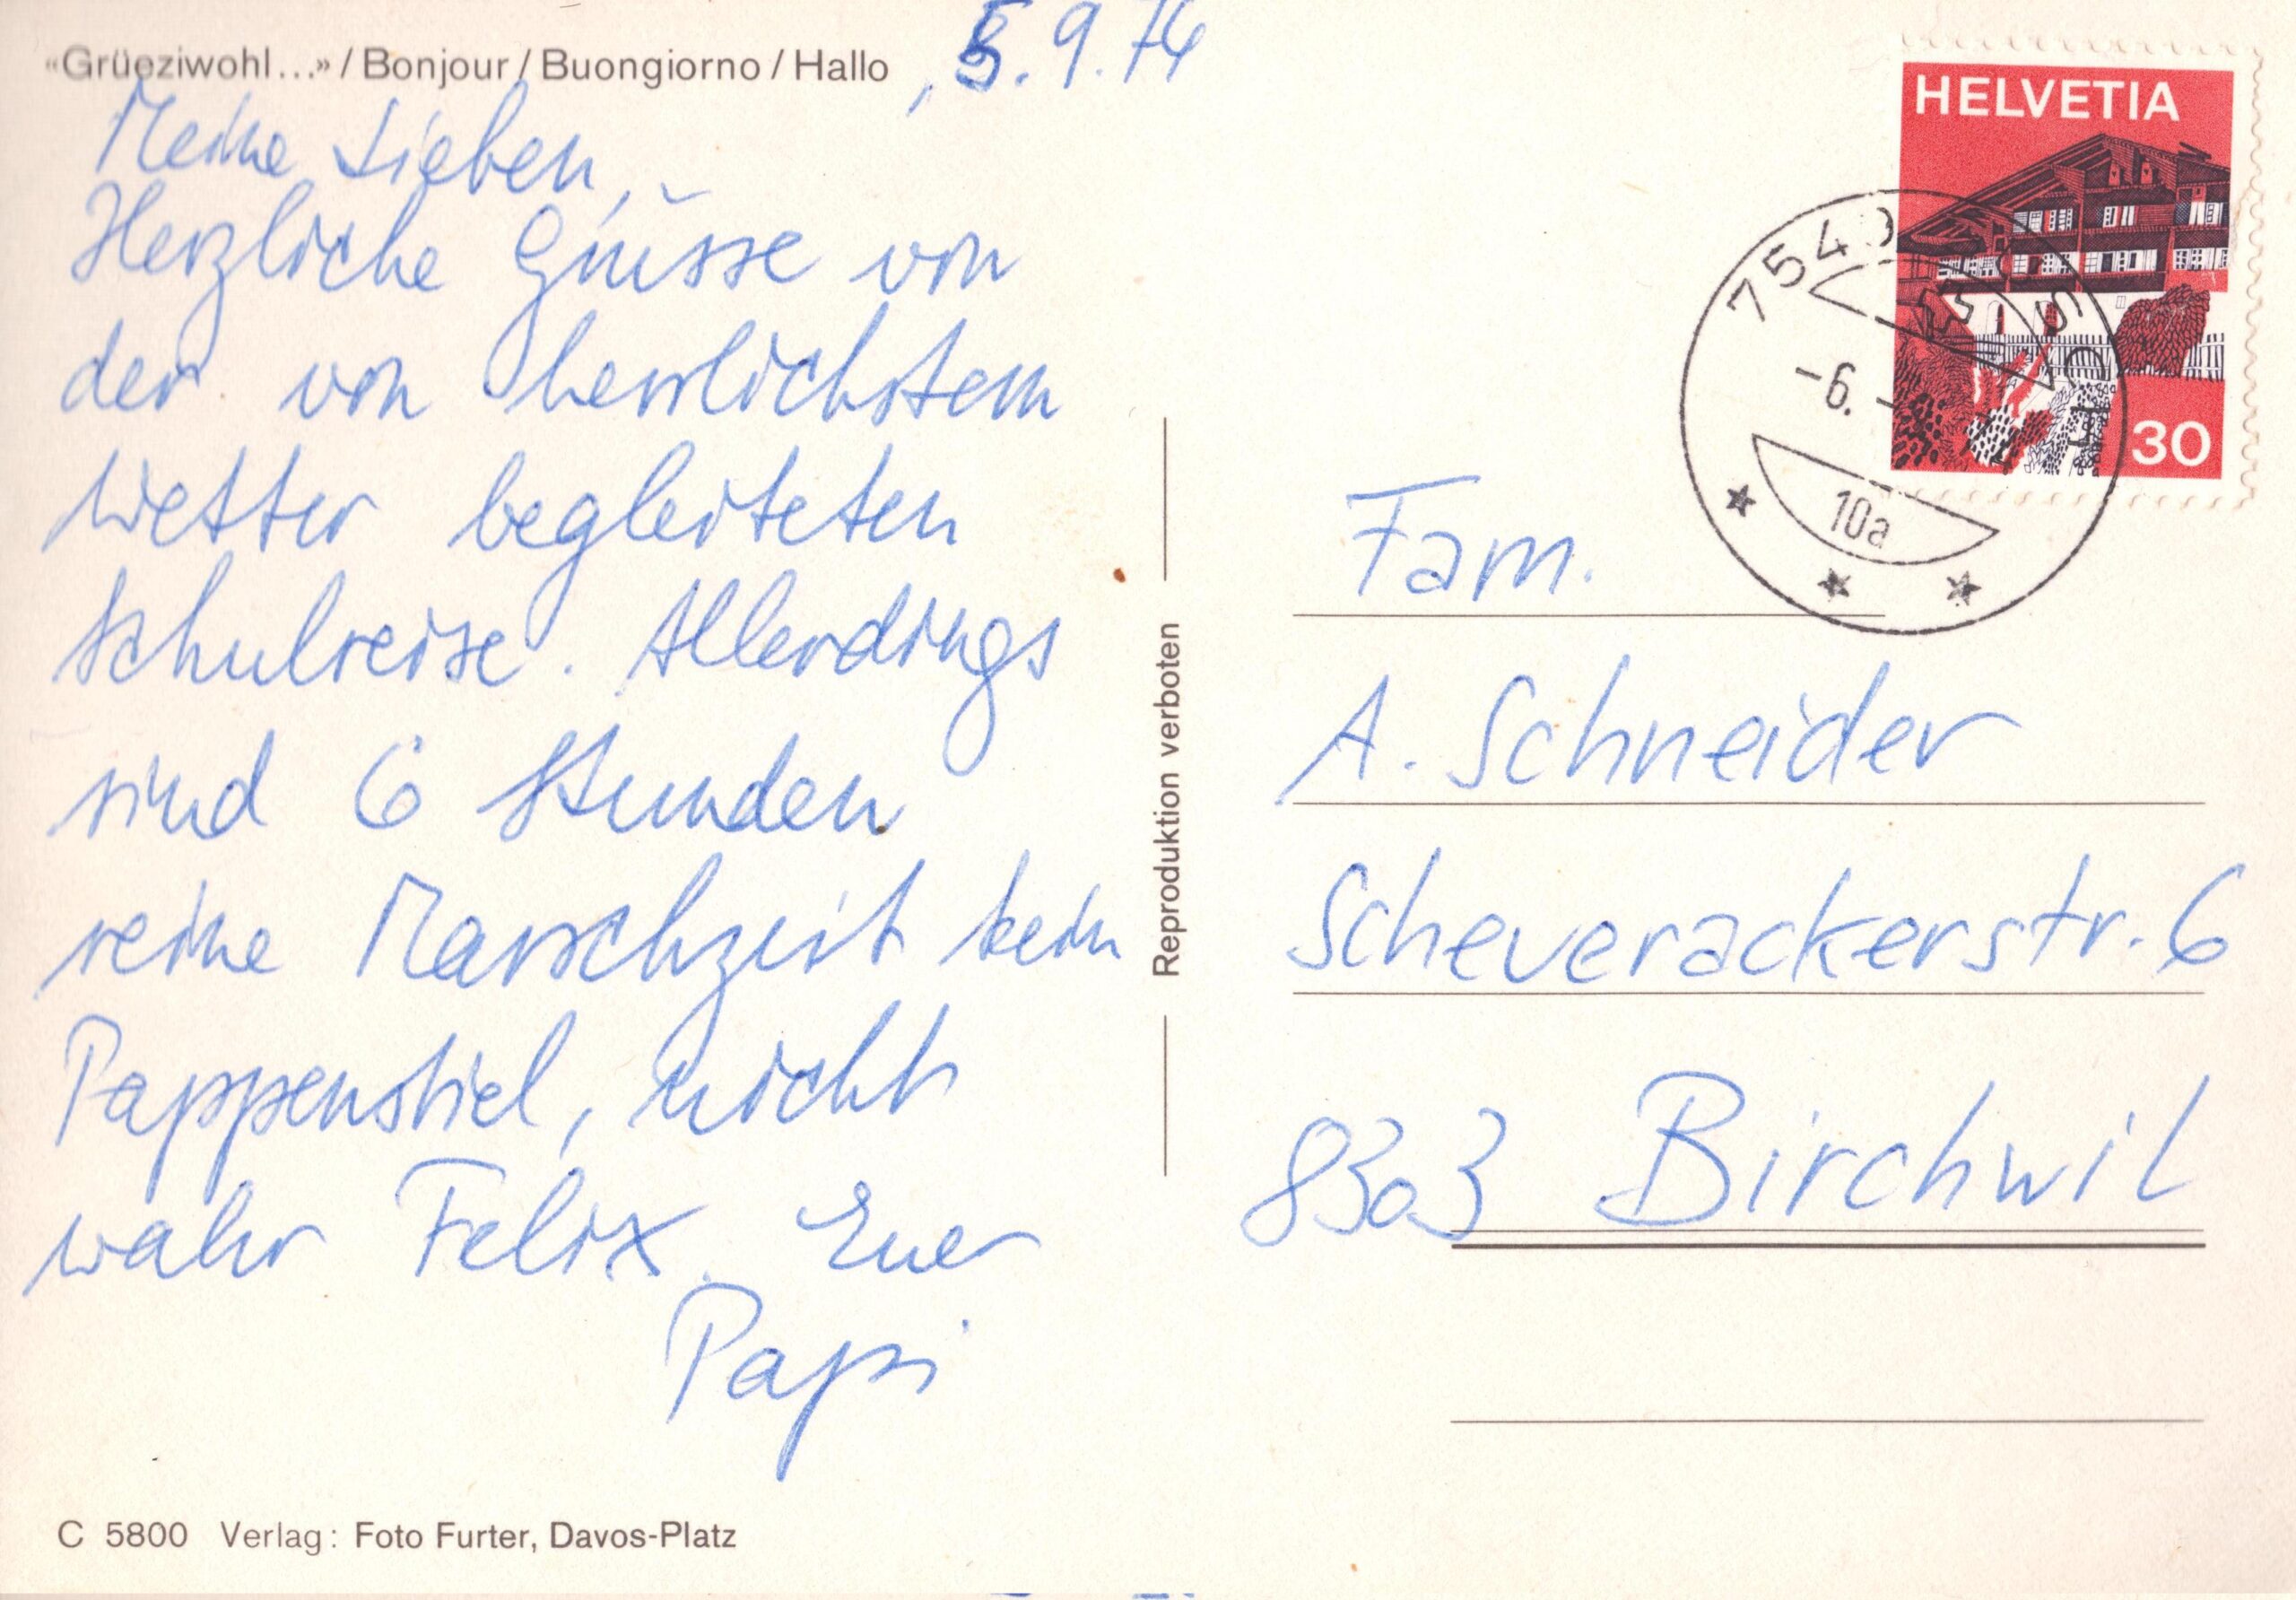 «Grüeziwohl...» / Bonjour / Buongiorno / Hallo
, 5.9.74
Meine Lieben,
Herzliche Grüsse von
der von herrlichstem
Wetter begleiteten
Schulreise. Allerdings
sind 6 Stunden
reine Marschzeit kein
Pappenstiel, nicht
wahr Felix. Euer
Papi
C 5800 Verlag: Foto Furter, Davos-Platz
Reproduktion verboten
HELVETIA
30
754
-6.
10a
Fam.
A. Schneider
Scheuerackerstr. 6
8303 Birchwil